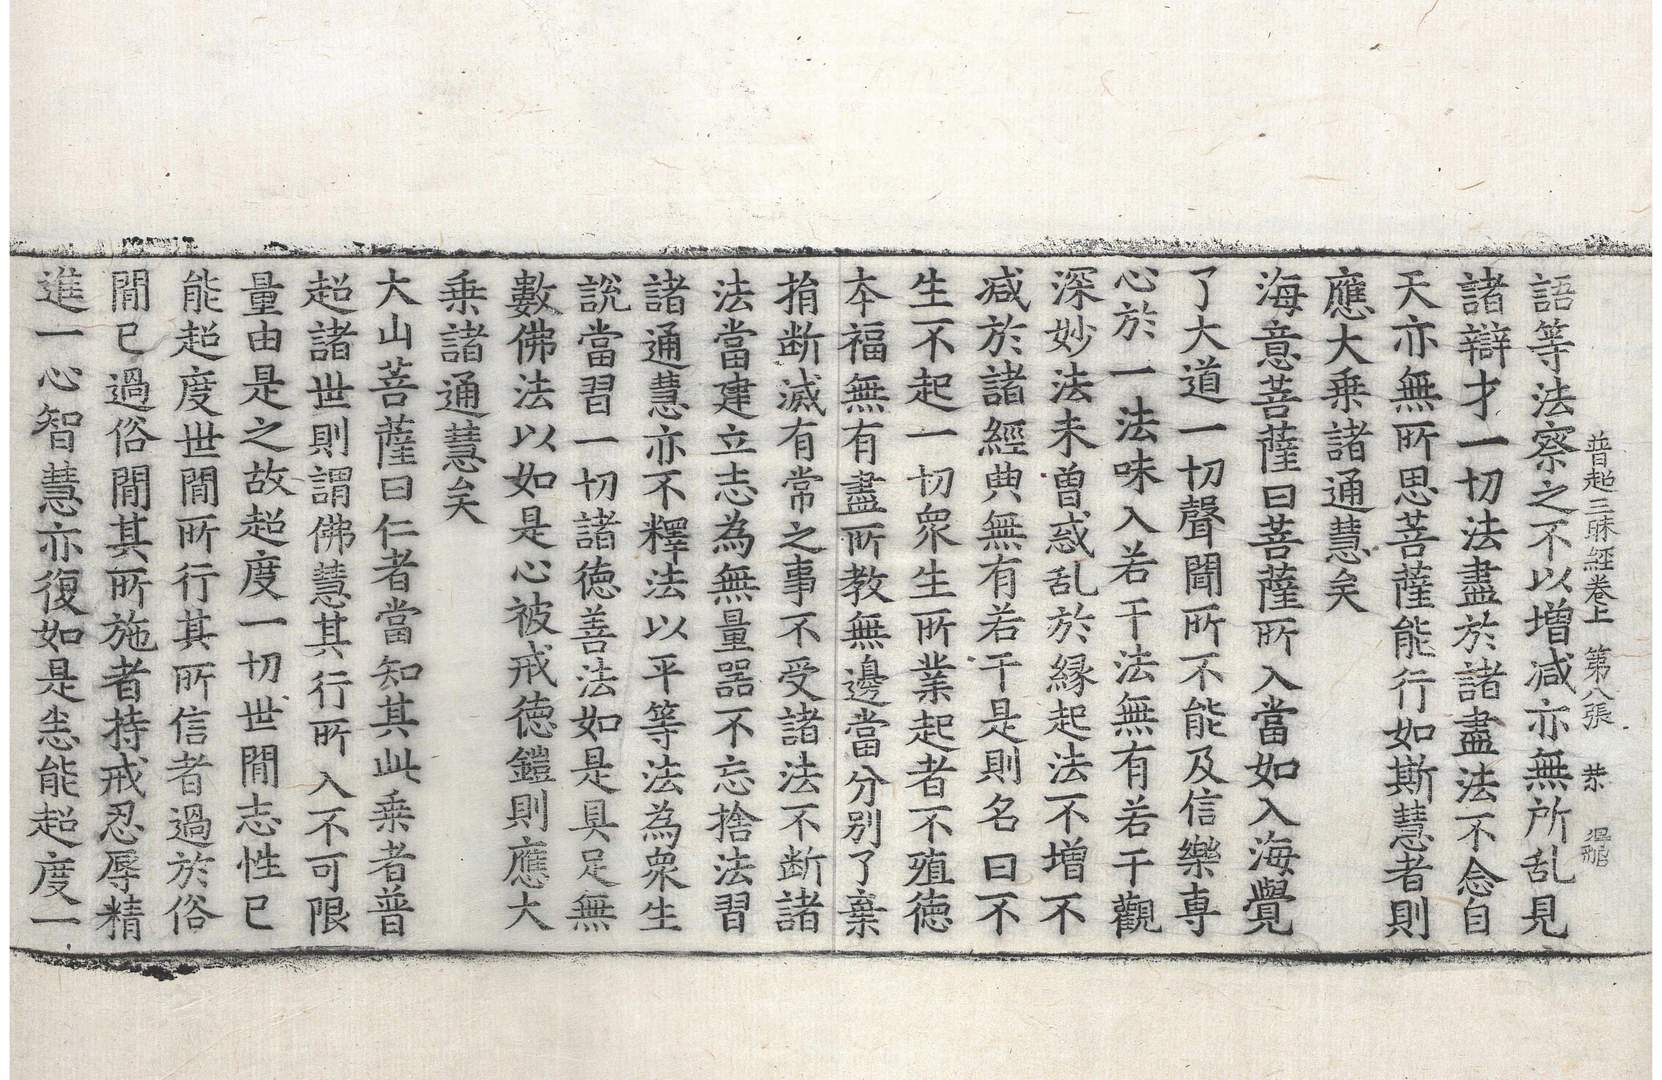 普超三昧經卷上　第八張　恭
語等法察之不以增减亦無所乱見
諸辯才一切法盡於諸盡法不念自
天亦無所思菩薩能行如斯慧者則
應大乘諸通慧矣
海意菩薩曰菩薩所入當如入海覺
了大道一切聲聞所不能及信樂専
心於一法味入若干法無有若干觀
深妙法未曽惑乱於縁起法不增不
减於諸經典無有若干是則名曰不
生不起一切衆生所業起者不殖徳
夲福無有盡所教無邊當分別了棄
捐断滅有常之事不受諸法不断諸
法當建立志為無量器不忘捨法習
諸通慧亦不釋法以平等法為衆生
說當習一切諸徳善法如是具足無
數佛法以如是心被戒徳鎧則應大
乘諸通慧矣
大山菩薩曰仁者當知其此乘者普
超諸世則謂佛慧其行所入不可限
量由是之故超度一切世間志性已
能超度世間所行其所信者過於俗
間已過俗間其所施者持戒忍辱精
進一心智慧亦復如是悉能超度一